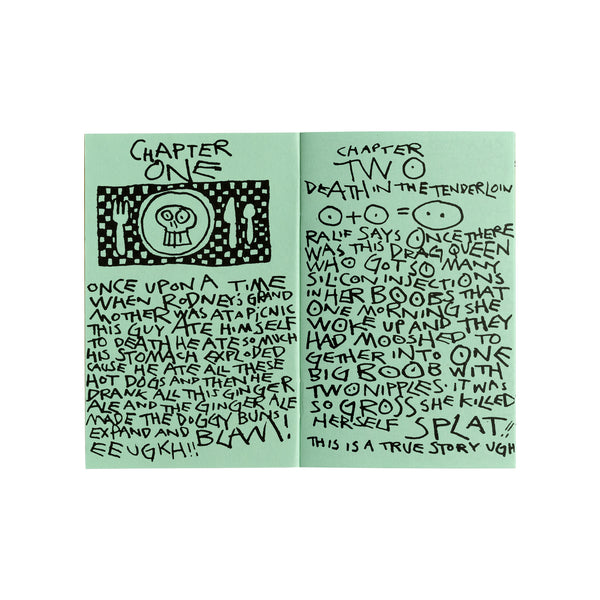 CHAPTER
ONE
ONCE UPON A TIME
WHEN RODNEY'S GRAND
MOTHER WAS AT A PICNIC
THIS GUY ATE HIMSELF
TO DEATH HE ATE SO MUCH
HIS STOMACH EXPLODED
CAUSE HE ATE ALL THESE
HOT DOGS AND THEN HE
DRANK ALL THIS GINGER
ALE AND THE GINGER ALE
MADE THE DOGGY BUNS
EXPAND AND BLAM!
EEUGKH!!
CHAPTER
TWO
DEATH IN THE TENDERLOIN
RALIF SAYS ONCE THERE
WAS THIS DRAG QUEEN
WHO GOT SO MANY
SILICON INJECTIONS
IN HER BOOBS THAT
ONE MORNING SHE
WOKE UP AND THEY
HAD MOOSHED TO
GETHER INTO ONE
BIG BOOB WITH
TWO NIPPLES. IT WAS
SO GROSS SHE KILLED
HERSELF SPLAT!!
THIS IS A TRUE STORY UGH